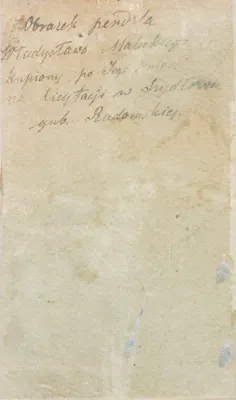 Obrazek pendzla
Władysława Maleckiego
kupiony po Jego
na licytacji w Szydłowcu
gub. Radomskiej.